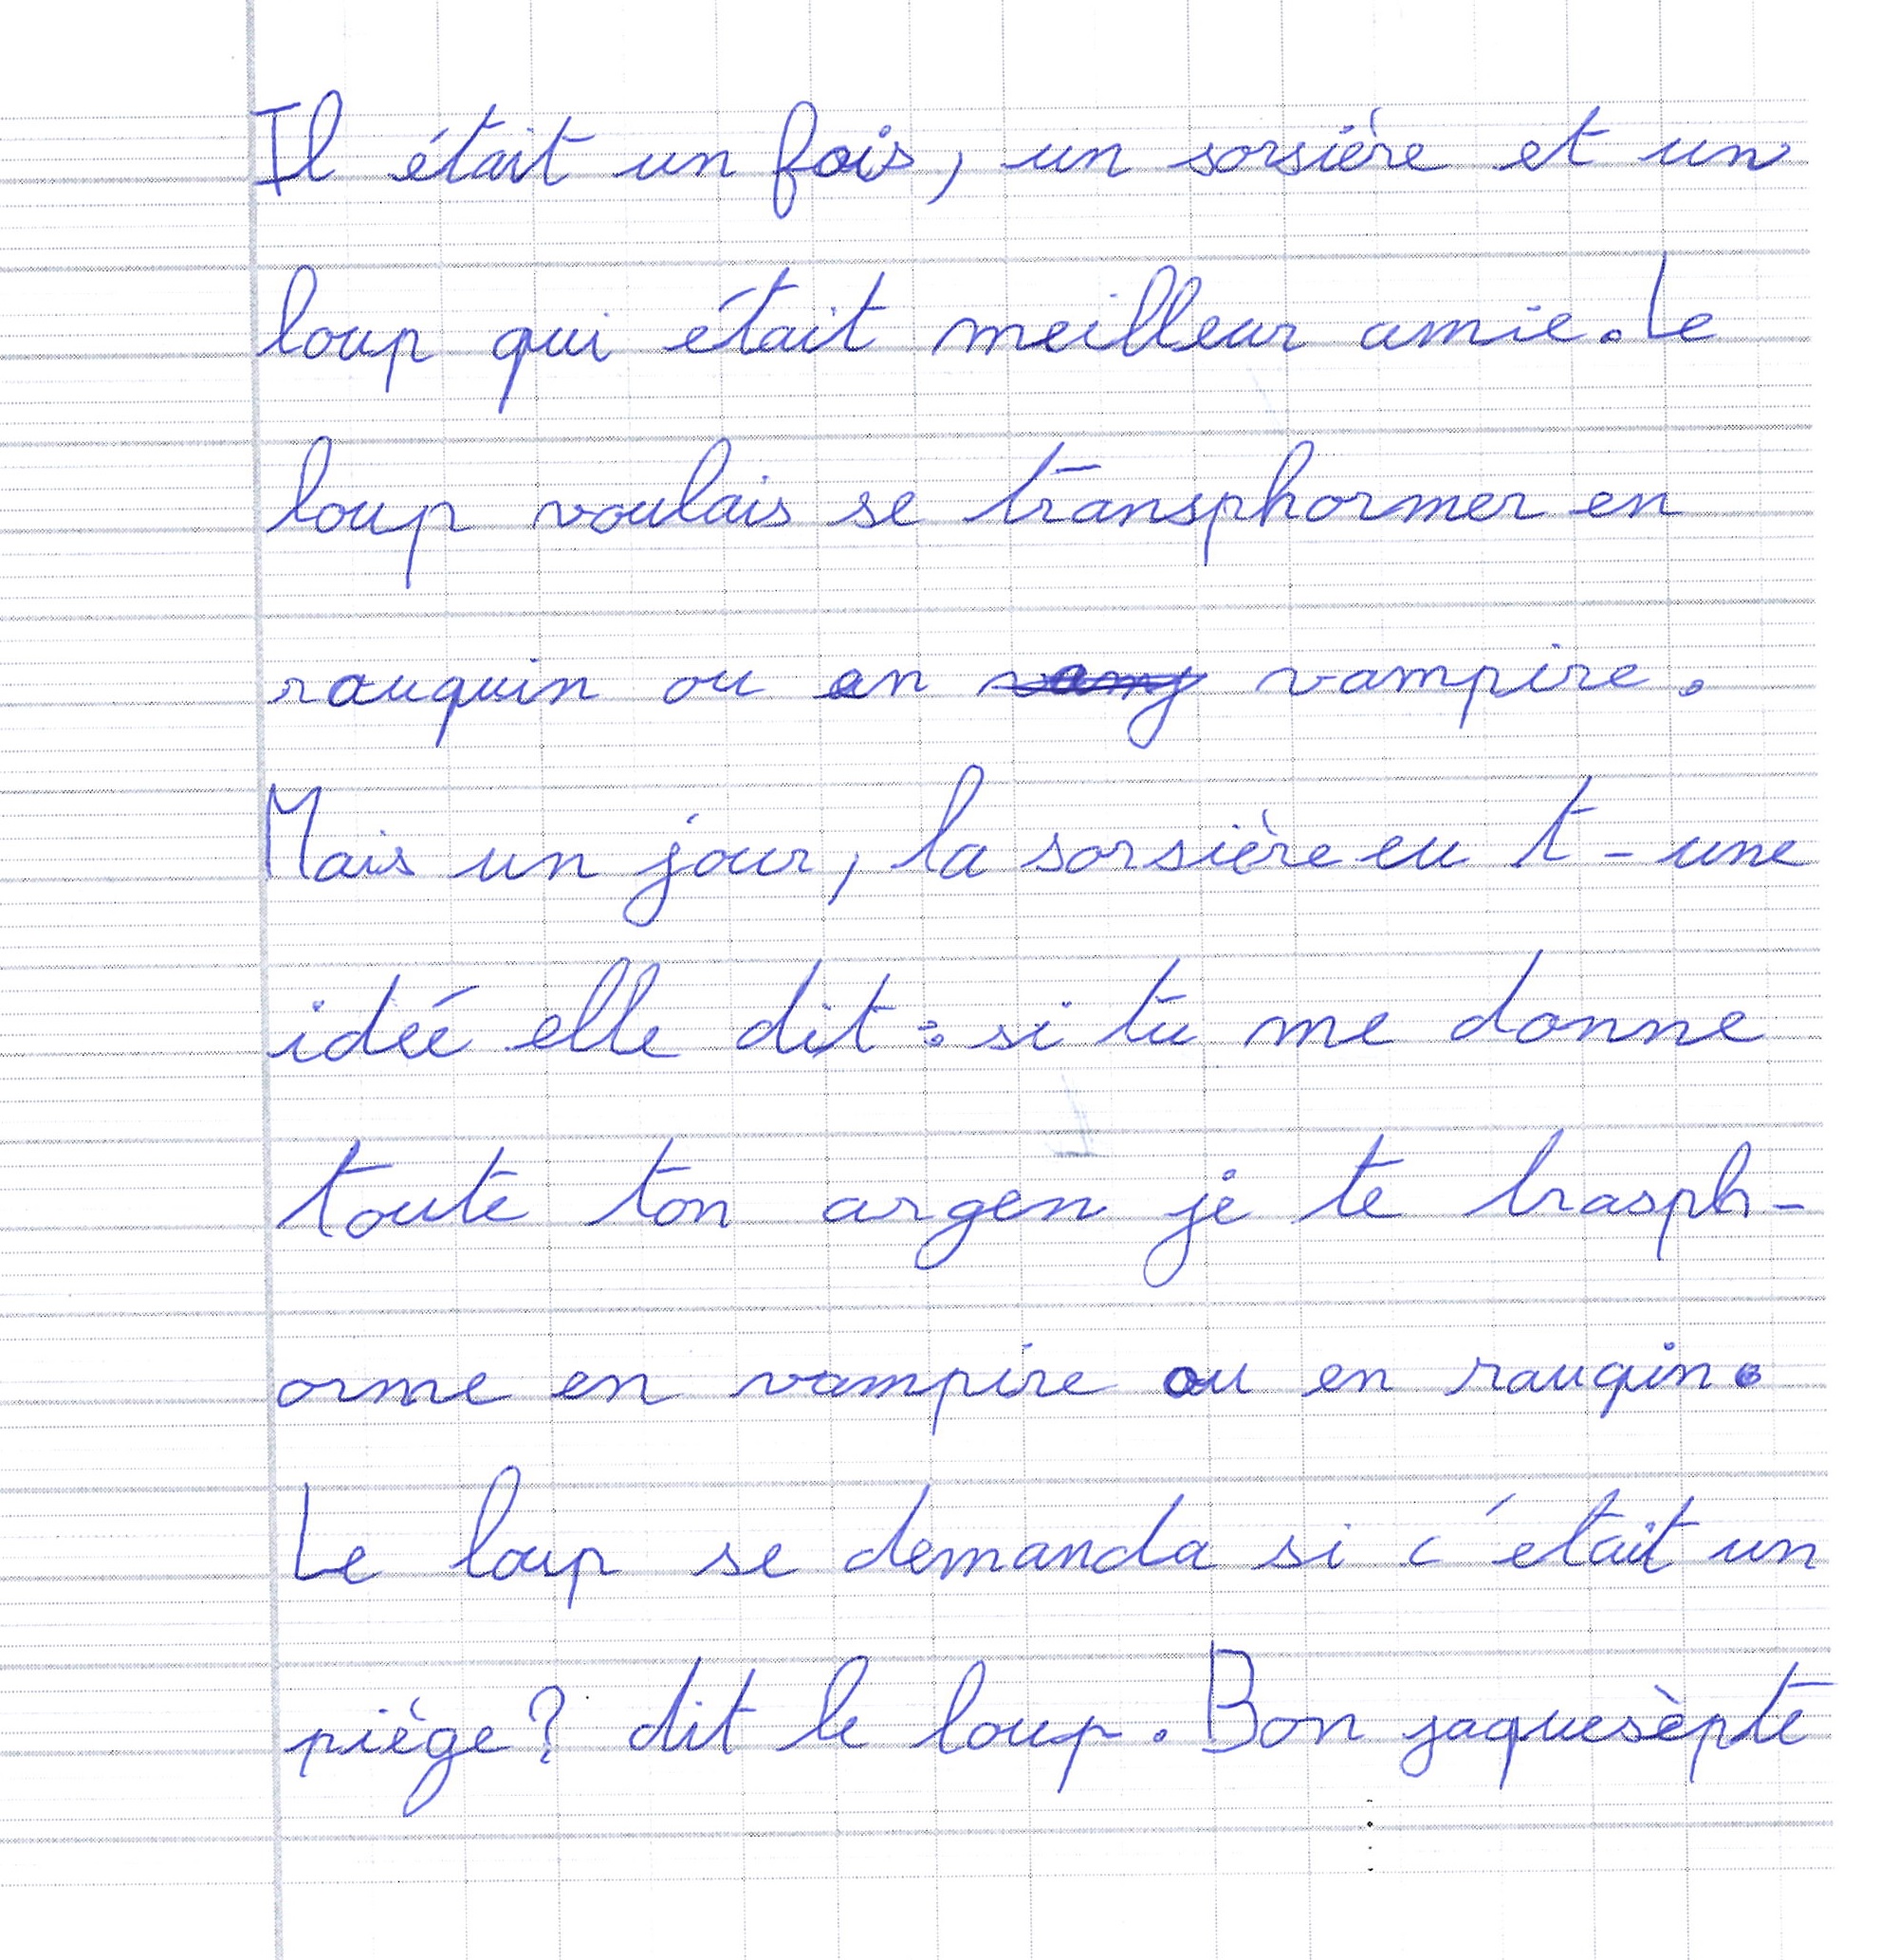 Il était un fois, un sorsière et un
loup qui était meilleur amie. Le
loup voulais se transphormer en
rauquin ou en vampire.
Mais un jour, la sorsière eu t-une
idée elle dit : si tu me donne
toute ton argen je te trasph-
orme en vampire ou en rauqin.
Le loup se demanda si c'etait un
piège ? dit le loup. Bon jaquesèpte